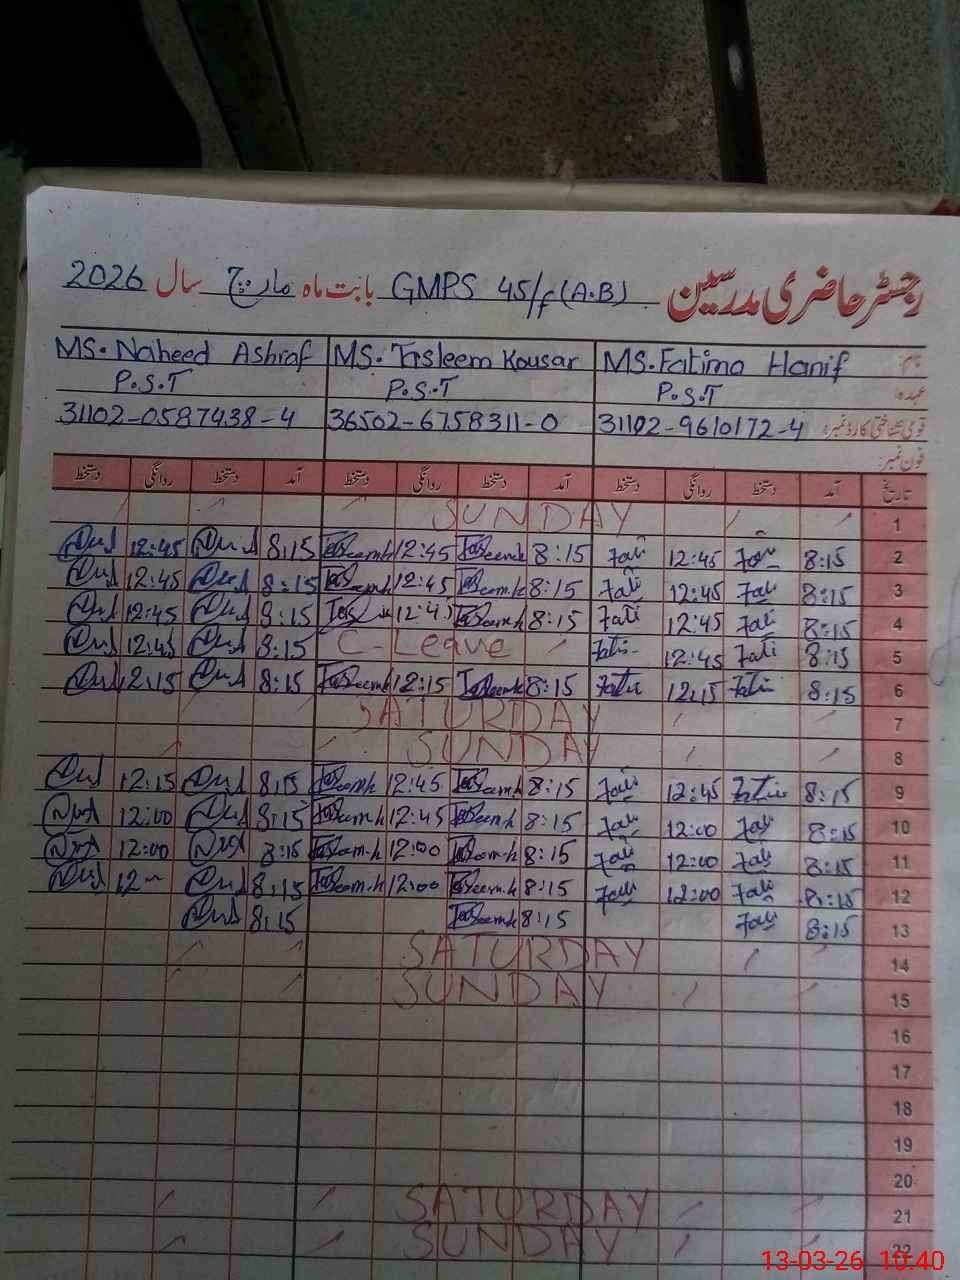 رجسٹر حاضری مدرسین GMPS 45/f (A.B) بابت ماہ مارچ سال 2026
نام MS. Fatima Hanif MS. Tasleem Kousar MS. Naheed Ashraf
عہدہ P.S.T P.S.T P.S.T
قومی شناختی کارڈ نمبر 31102-9610172-4 36502-6758311-0 31102-0587438-4
فون نمبر:
تاریخ آمد دستخط روانگی دستخط آمد دستخط روانگی دستخط آمد دستخط روانگی دستخط
1 SUNDAY
2 8:15 12:45 8:15 Tasleemk 12:45 Tasleemk 8:15 12:45
3 8:15 Fati 12:45 Fati 8:15 Tasleemk 12:45 Tasleemk 8:15 12:45
4 8:15 Fati 12:45 Fati 8:15 Tasleemk 12:45 12:45
5 8:15 Fati 12:45 Fati C-Leave 12:45
6 8:15 Fati 12:15 Fati 8:15 Tasleemk 12:15 Tasleemk 8:15 12:15
7 SATURDAY
8 SUNDAY
9 8:15 Fati 12:45 Fati 8:15 Tasleemk 12:45 Tasleemk 8:15 12:15
10 8:15 Fati 12:00 Fati 8:15 Tasleemk 12:45 Tasleemk 8:15 12:00
11 8:15 Fati 12:00 Fati 8:15 Tasleemk 12:00 Tasleemk 8:15 12:00
12 8:15 Fati 12:00 Fati 8:15 Tasleemk 12:00 Tasleemk 8:15 12
13 8:15 Fati 8:15 Tasleemk 8:15
14 SATURDAY
15 SUNDAY
16
17
18
19
20
21 SATURDAY
22 SUNDAY
13-03-26 10:40